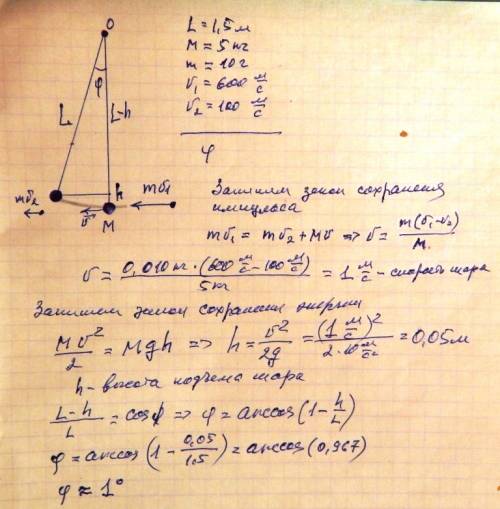 O
φ
L
L-h
h
mv₂
v
M
mv₁
L = 1,5 м
M = 5 кг
m = 10 г
v₁ = 600 м/с
v₂ = 100 м/с
φ
Запишем закон сохранения
импульса
mv₁ = mv₂ + Mv => v = m(v₁-v₂)/M
v = 0,010 кг · (600 м/с - 100 м/с)/5 кг = 1 м/с - скорость шара
Запишем закон сохранения энергии
Mv²/2 = Mgh => h = v²/2g = (1 м/с)²/2·10 м/с² = 0,05 м
h - высота подъема шара
L-h/L = cosφ => φ = arccos(1 - h/L)
φ = arccos(1 - 0,05/1,5) = arccos(0,967)
φ ≈ 1°